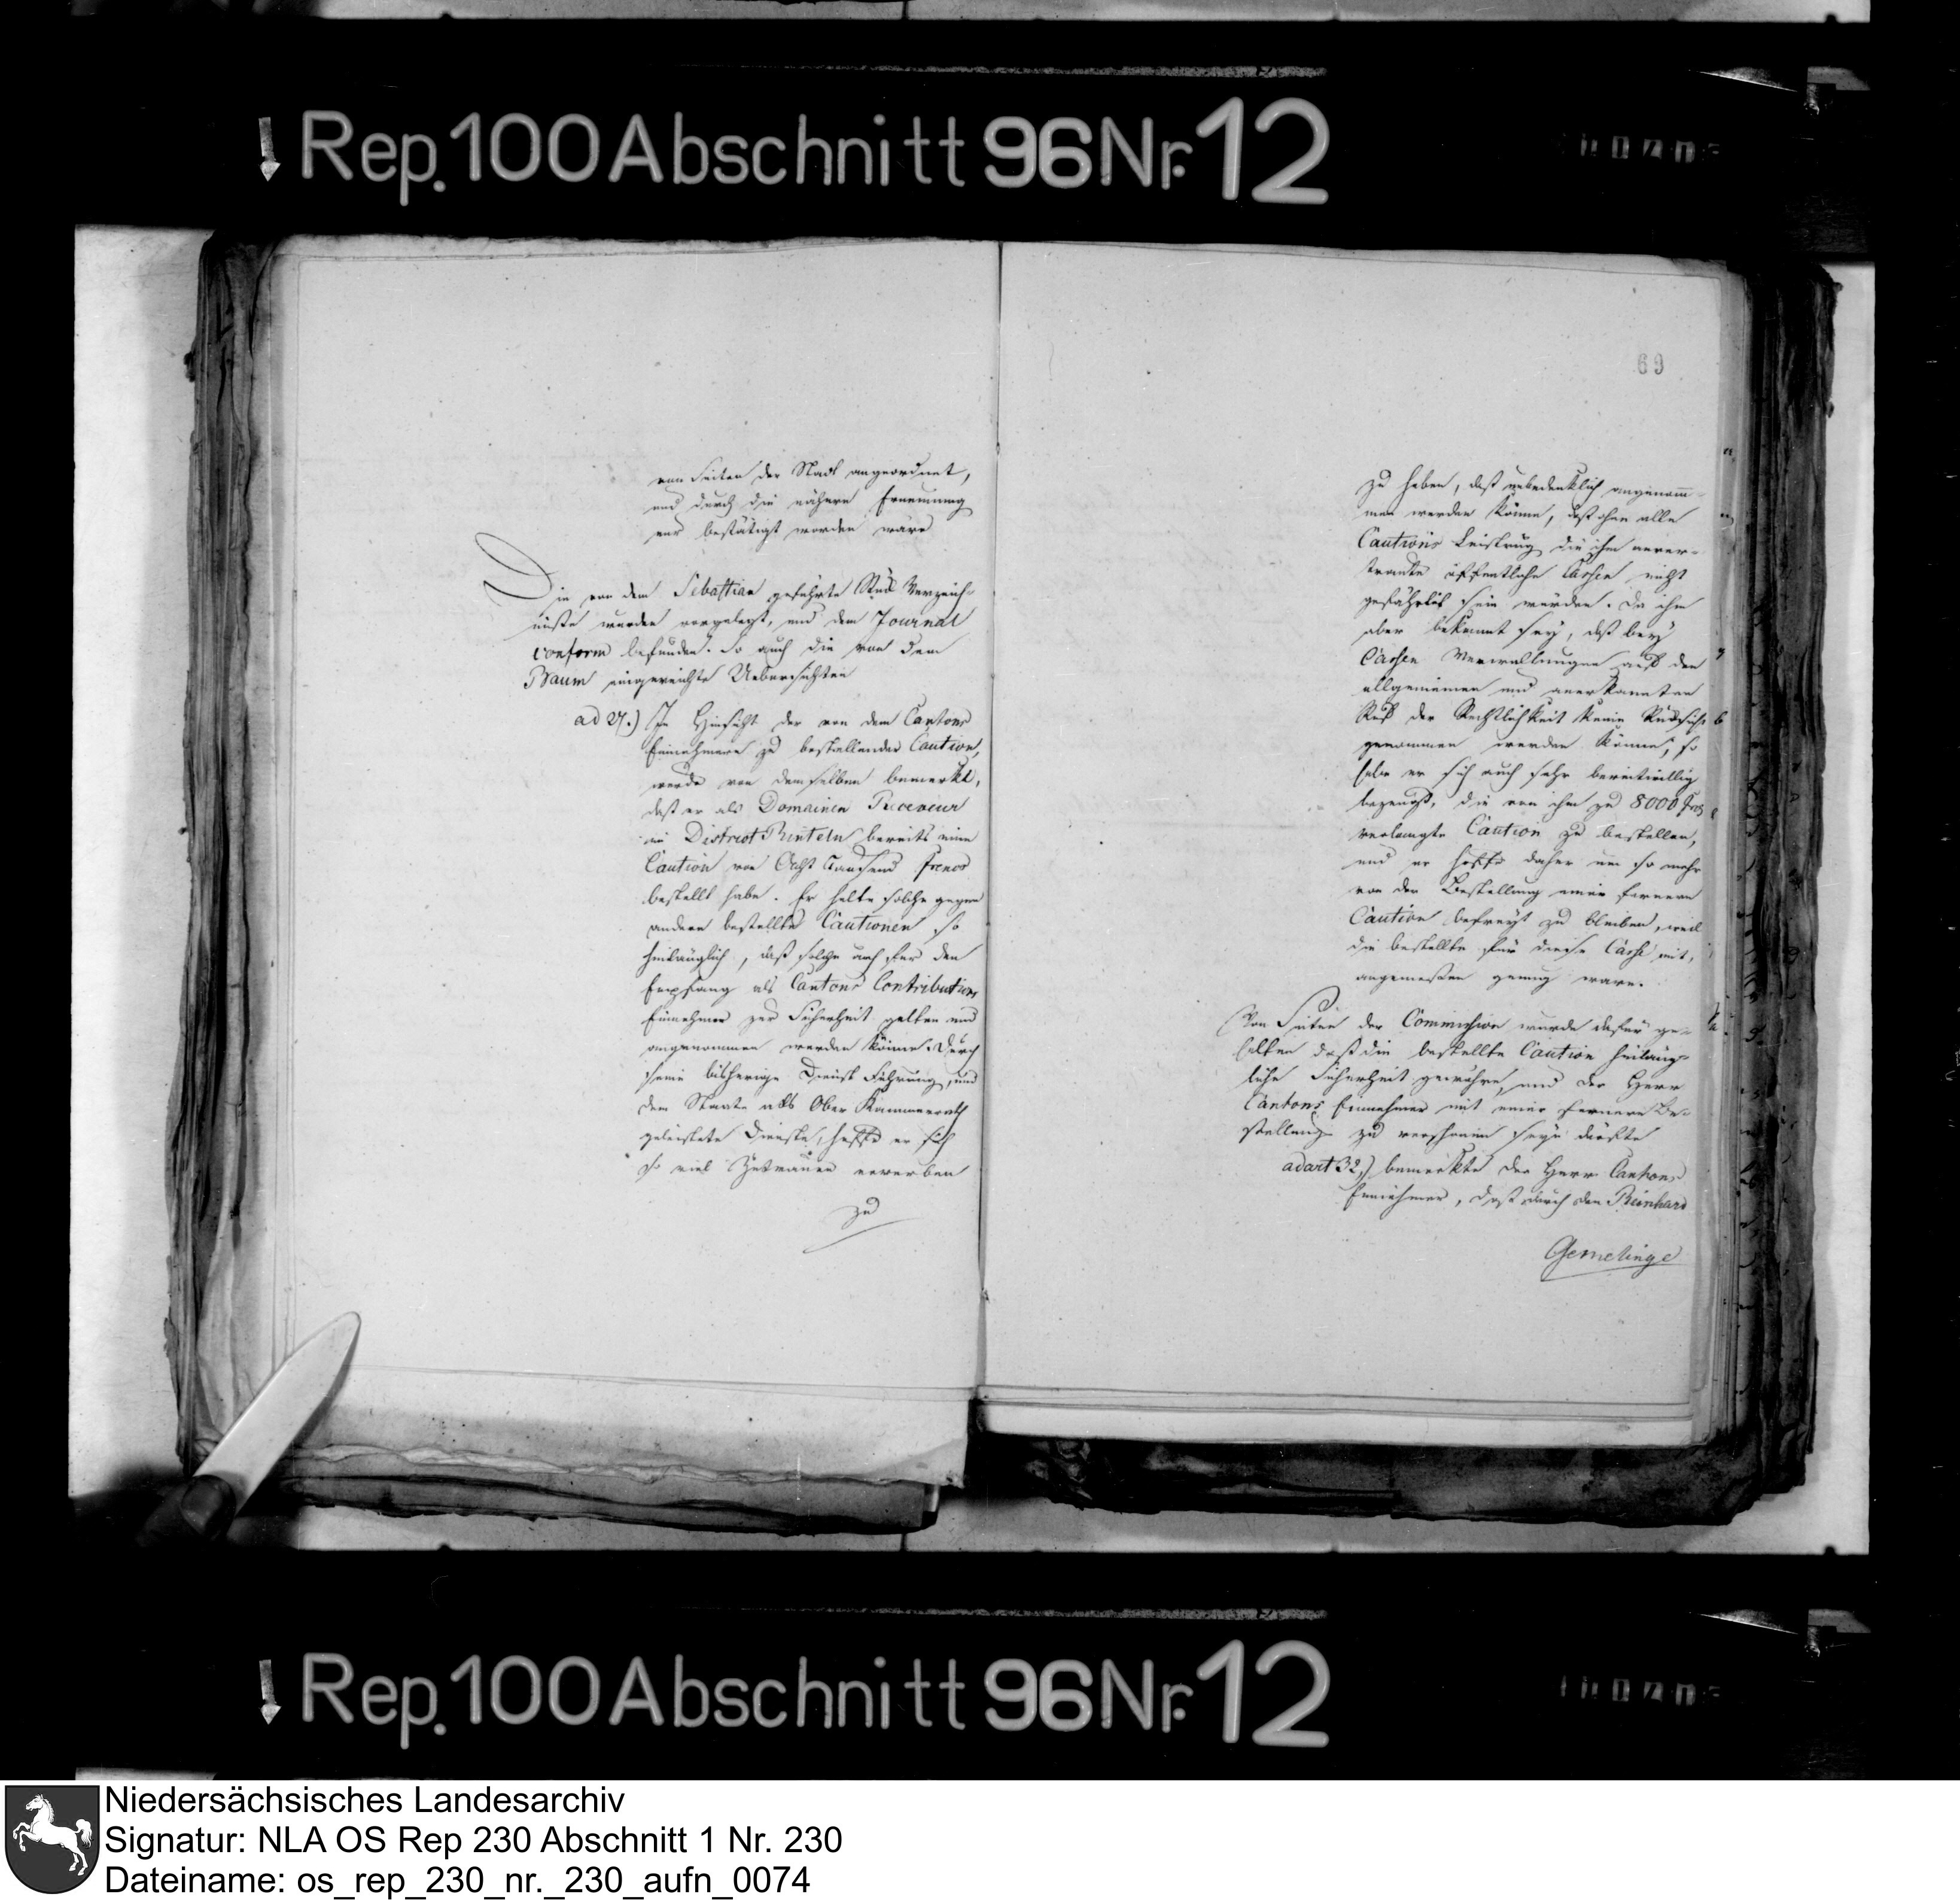 Rep. 100 Abschnitt 96 Nr. 12
von Seiten der Stadt angeordnet,
und durch die nähere Ernennung
nur bestätigt worden wäre
Die von dem Sebastian geführte Verzeich-
niße wurden vorgelegt, und dem Journal
conform befunden. So auch die von dem
Baum eingereichte Uebersichten
ad 27.) In Hinsicht der von dem Cantons
Einnehmer zu bestellenden Caution,
wurde von demselben bemerkt,
daß er als Domainen Receveur
im District Rinteln bereits eine
Caution von Acht Tausend Francs
bestellt habe. Er halte solche gegen
andere bestellte Cautionen so
hinlänglich, daß solche auch für den
Empfang als Cantons Contributions
Einnehmer zur Sicherheit gelten und
angenommen werden könne. Durch
seine bisherige Dienst Führung, und
dem Staate als Ober Kammerrath
geleistete Dienste, hoffe er sich
so viel Zutrauen erworben
zu
69
zu haben, daß unbedenklich angenom-
men werden könne, daß ohne alle
Cautions Leistung die ihm anver-
traute öffentliche Cassen nicht
gefährdet sein würden. Da ihm
aber bekannt sey, daß bey
Cassen Verwaltungen auf den
allgemeinen und anerkannten
Ruf der Rechtlichkeit keine Rücksicht
genommen werden könne, so
habe er sich auch sehr bereitwillig
bezeugt, die von ihm zu 8000 Frcs
verlangte Caution zu bestellen,
und er hoffe daher um so mehr
von der Bestellung einer fernern
Caution befreyt zu bleiben, weil
die bestellte für diese Casse mit,
angemessen genug wäre.
Von Seiten der Commission wurde dafür ge-
halten daß die bestellte Caution hinläng-
liche Sicherheit gewähre, und der Herr
Cantons Einnehmer mit einer fernern Be-
stellung zu verschonen seyn dürfte
ad art 32,) bemerkte der Herr Cantons
Einnehmer, daß durch den Reinhard
Gemelinge
Rep. 100 Abschnitt 96 Nr. 12
Niedersächsisches Landesarchiv
Signatur: NLA OS Rep 230 Abschnitt 1 Nr. 230
Dateiname: os_rep_230_nr._230_aufn_0074